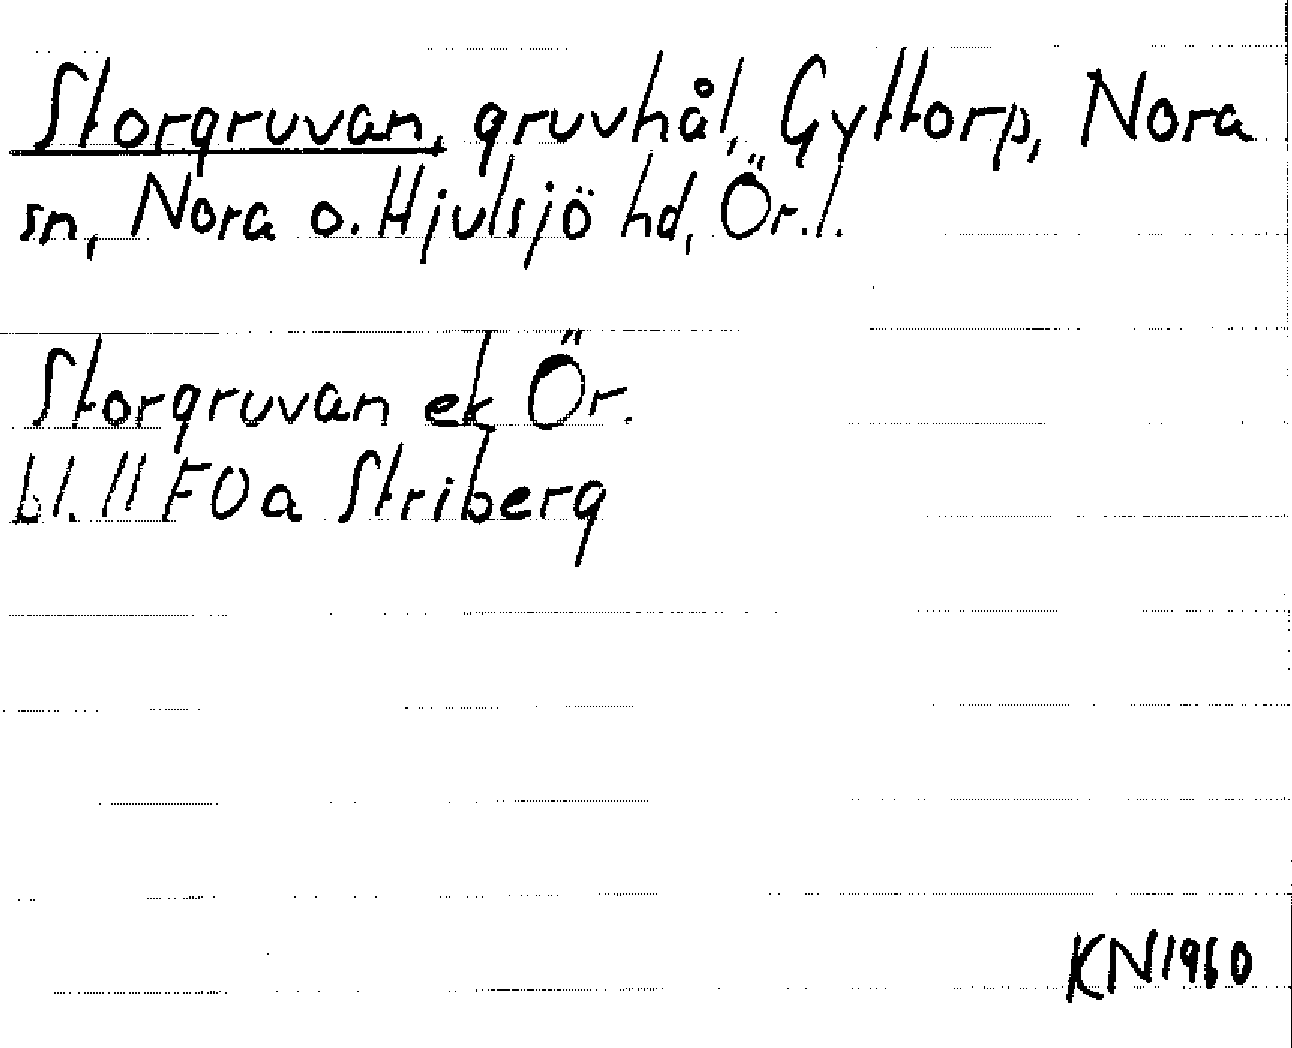 Storgruvan, gruvhål, Gyttorp, Nora
sn, Nora o. Hjulsjö hd, Ör. l.
Storgruvan ek Ör.
bl. 11 F0a Striberg
KN 1960